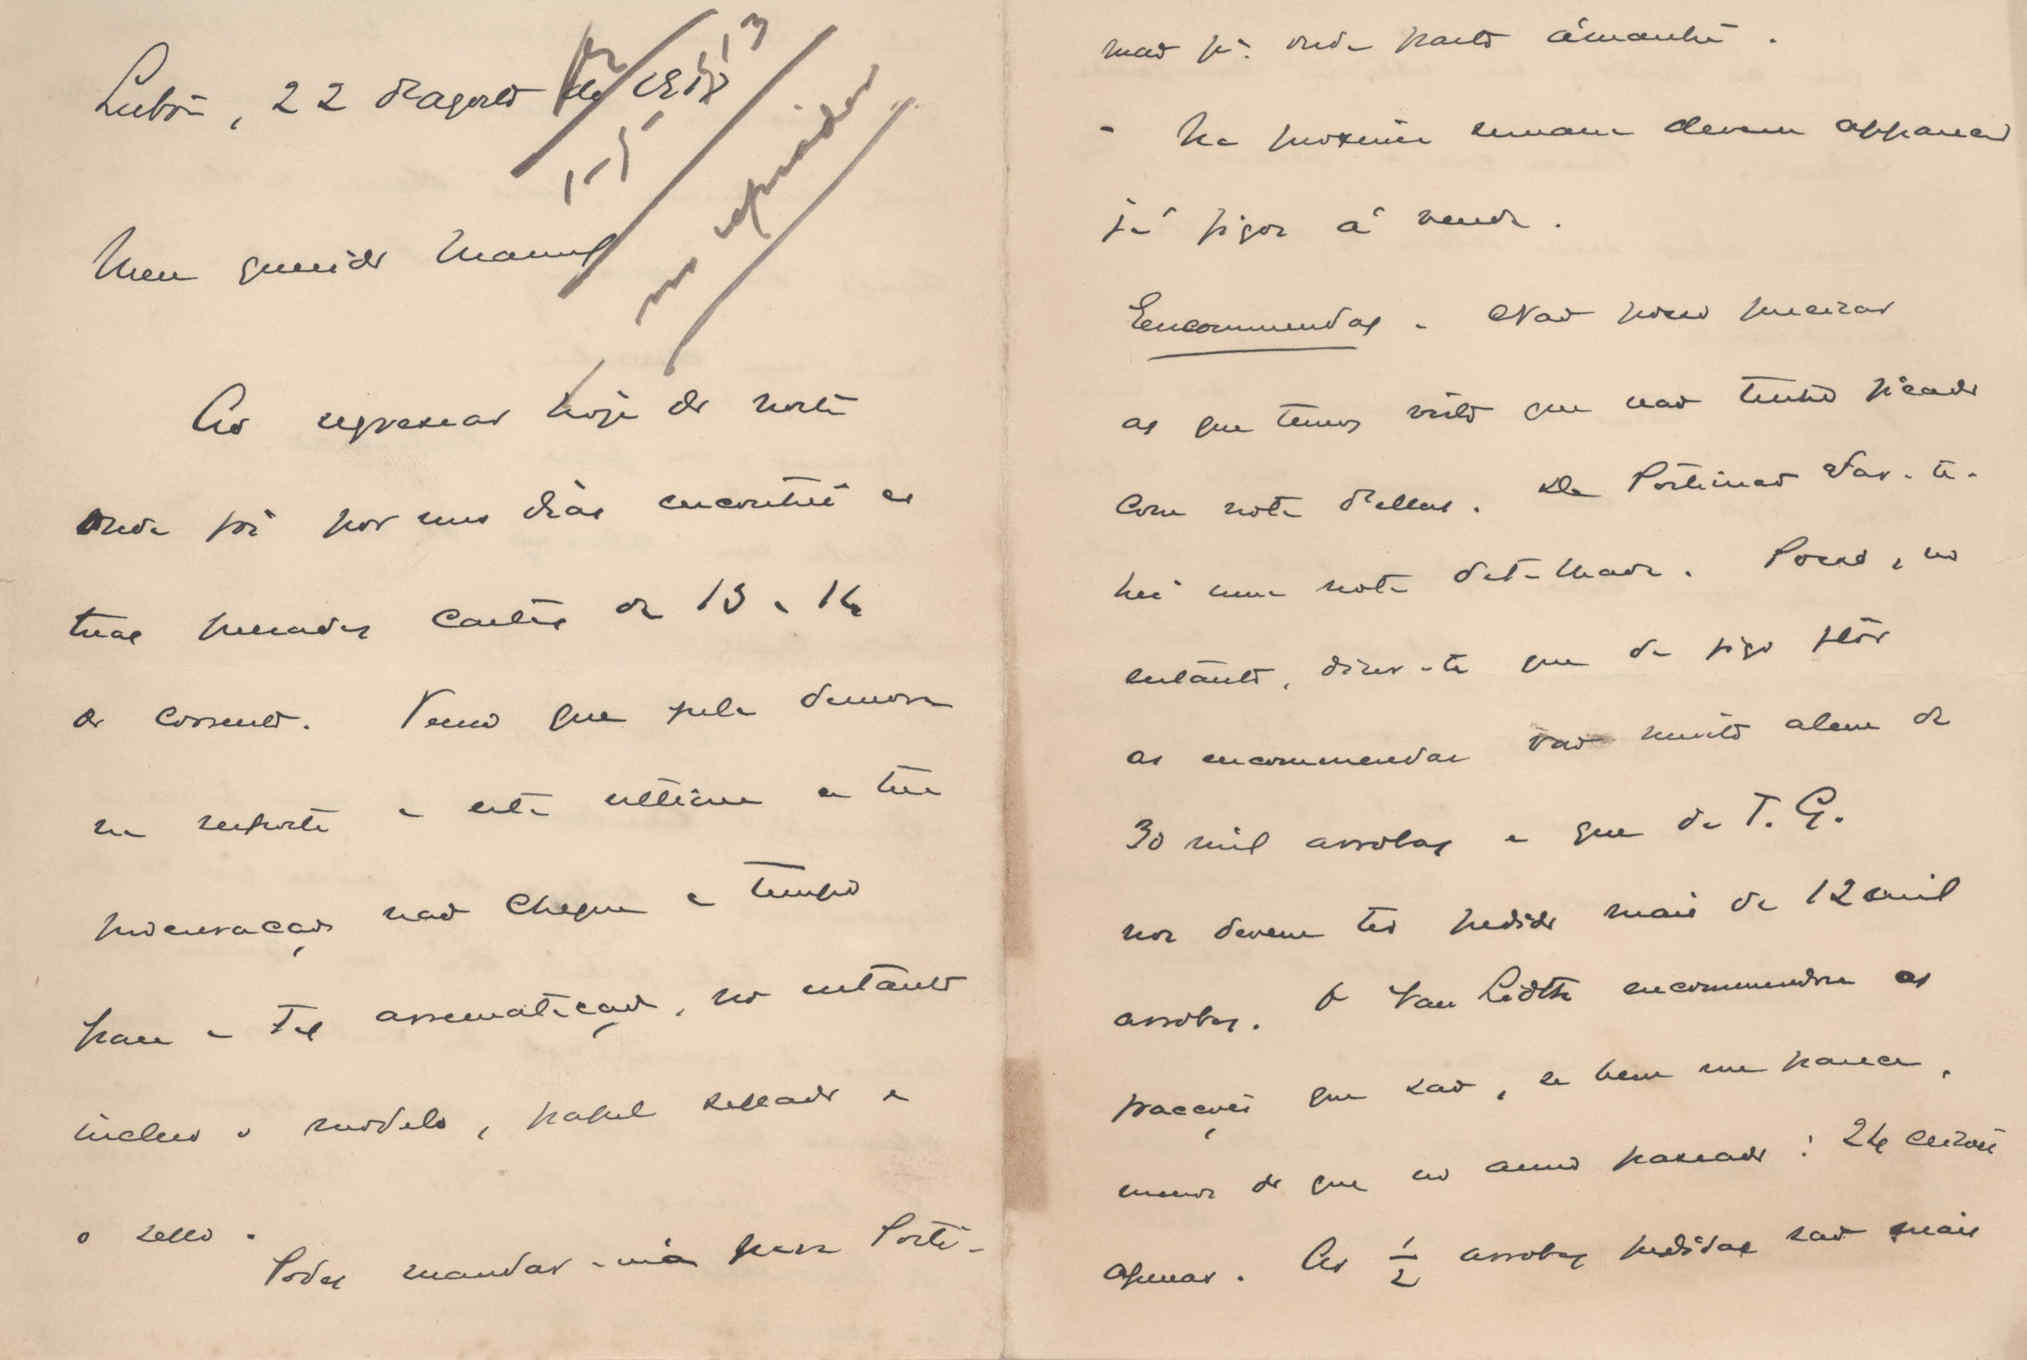 Lisboa, 22 d'agosto de 1913
1-5-
Meu querido Manuel
Ao regressar hoje do norte
onde foi por uns dias encontrei as
tuas presadas cartas de 13 e 14
do corrente. Temo que pela demora
na resposta a esta ultima a tua
procuração não chegue a tempo
para a tal arrematação, no entanto
incluo o modelo, papel sellado e
o sello.
Podes mandar-m'a para Porti-
mão pª. onde parto ámanhã.
- Na proxima semana devem apparecer
já figos á venda.
Encommendas - Não posso precizar
as que temos visto que não tenho ficado
com nota d'ellas. De Portimão dar-te-
hei uma nota detalhada. Posso, no
entanto, dizer-te que de figo flôr
as encommendas vão muito alem de
30 mil arrobas e que de T. G.
nos devem ter pedido mais de 12 mil
arrobas. O Van Lidth encommendou as
fracções que são, se bem me parece,
menos do que no anno passado: 24 cuzões
apenas. As ½ arrobas pedidas são mais